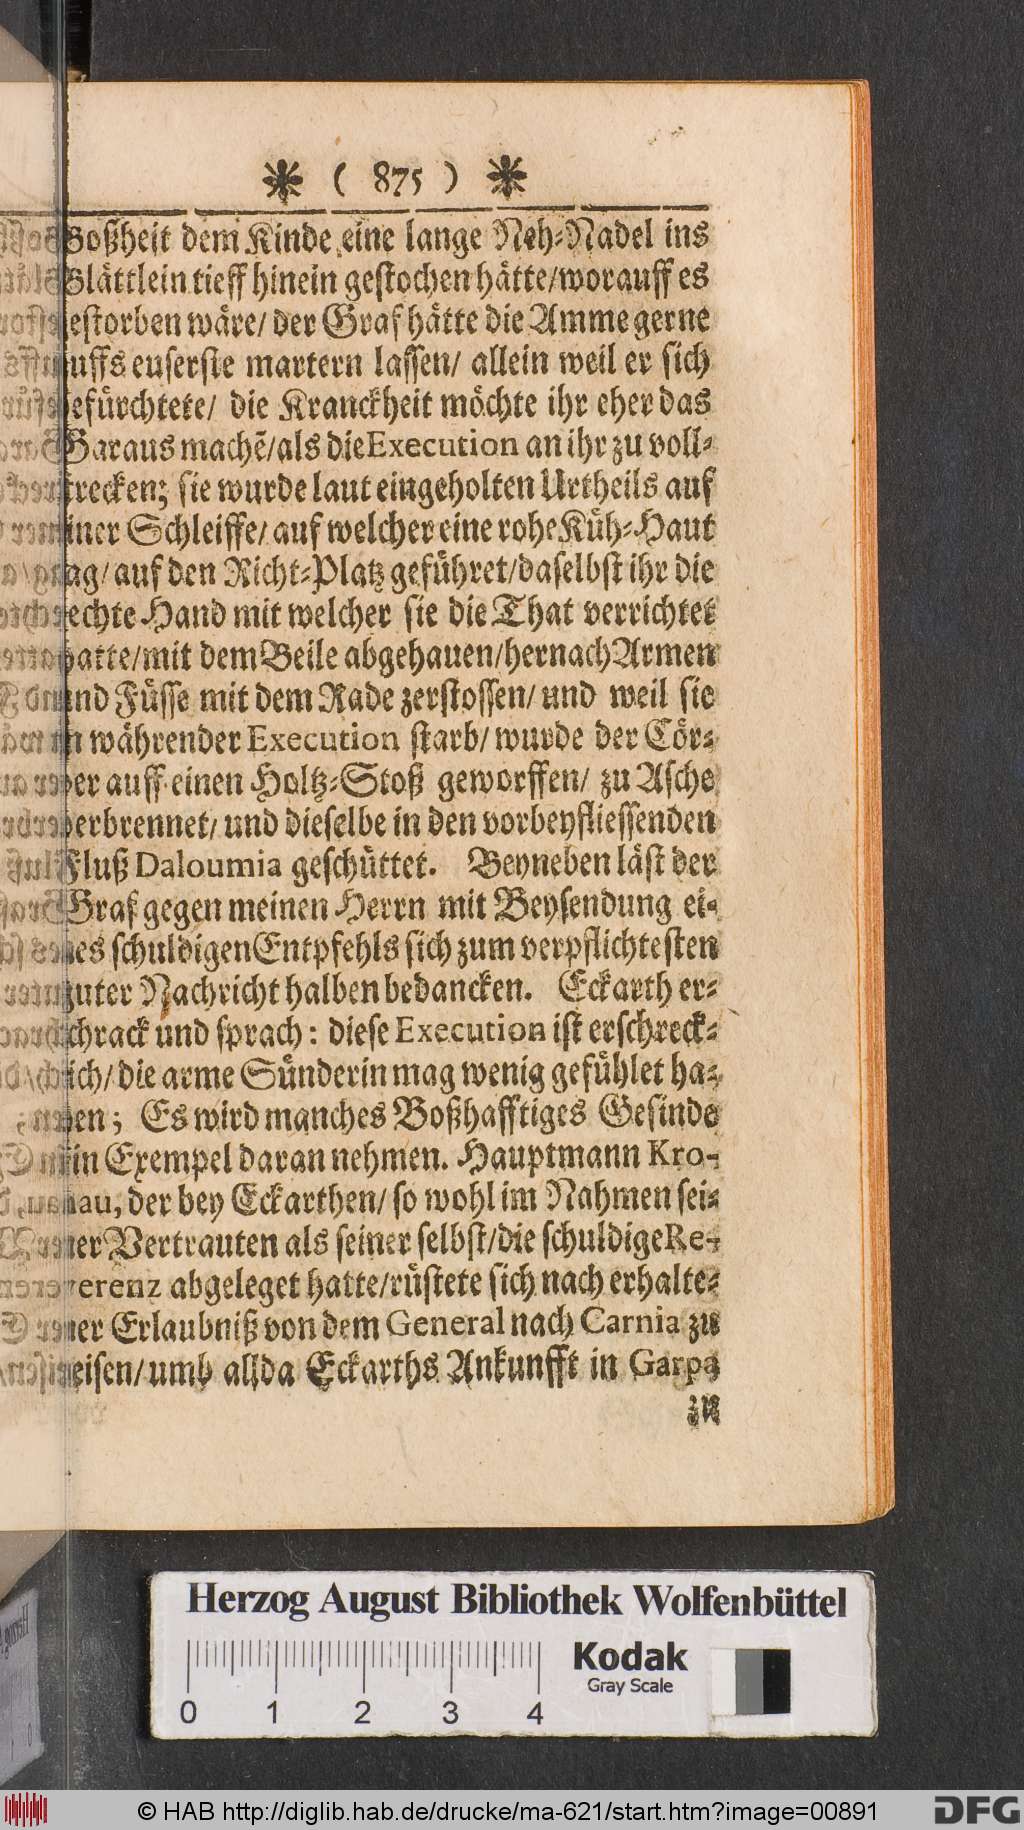 ❋ ( 875 ) ❋
Boßheit dem Kinde eine lange Neh-Nadel ins
Blättlein tieff hinein gestochen hätte/worauff es
gestorben wäre/ der Graf hätte die Amme gerne
auffs euserste martern lassen/ allein weil er sich
befürchtete/ die Kranckheit möchte ihr eher das
Garaus machē/als die Execution an ihr zu voll-
strecken; sie wurde laut eingeholten Urtheils auf
einer Schleiffe/ auf welcher eine rohe Küh-Haut
lag/ auf den Richt-Platz geführet/daselbst ihr die
rechte Hand mit welcher sie die That verrichtet
hatte/mit dem Beile abgehauen/hernach Armen
und Füsse mit dem Rade zerstossen/ und weil sie
in währender Execution starb/ wurde der Cör-
per auff einen Holtz-Stoß geworffen/ zu Asche
verbrennet/ und dieselbe in den vorbeyfliessenden
Fluß Daloumia geschüttet. Beyneben läst der
Graf gegen meinen Herrn mit Beysendung ei-
nes schuldigen Entpfehls sich zum verpflichtesten
guter Nachricht halben bedancken. Eckarth er-
schrack und sprach: diese Execution ist erschreck-
lich/ die arme Sünderin mag wenig gefühlet ha-
ben; Es wird manches Boßhafftiges Gesinde
ein Exempel daran nehmen. Hauptmann Kro-
nau, der bey Eckarthen/ so wohl im Nahmen sei-
ner Vertrauten als seiner selbst/die schuldige Re-
verenz abgeleget hatte/rüstete sich nach erhalte-
ner Erlaubniß von dem General nach Carnia zu
reisen/ umb allda Eckarths Ankunfft in Garpa
zu
Herzog August Bibliothek Wolfenbüttel
0 1 2 3 4
Kodak
Gray Scale
© HAB http://diglib.hab.de/drucke/ma-621/start.htm?image=00891
DFG